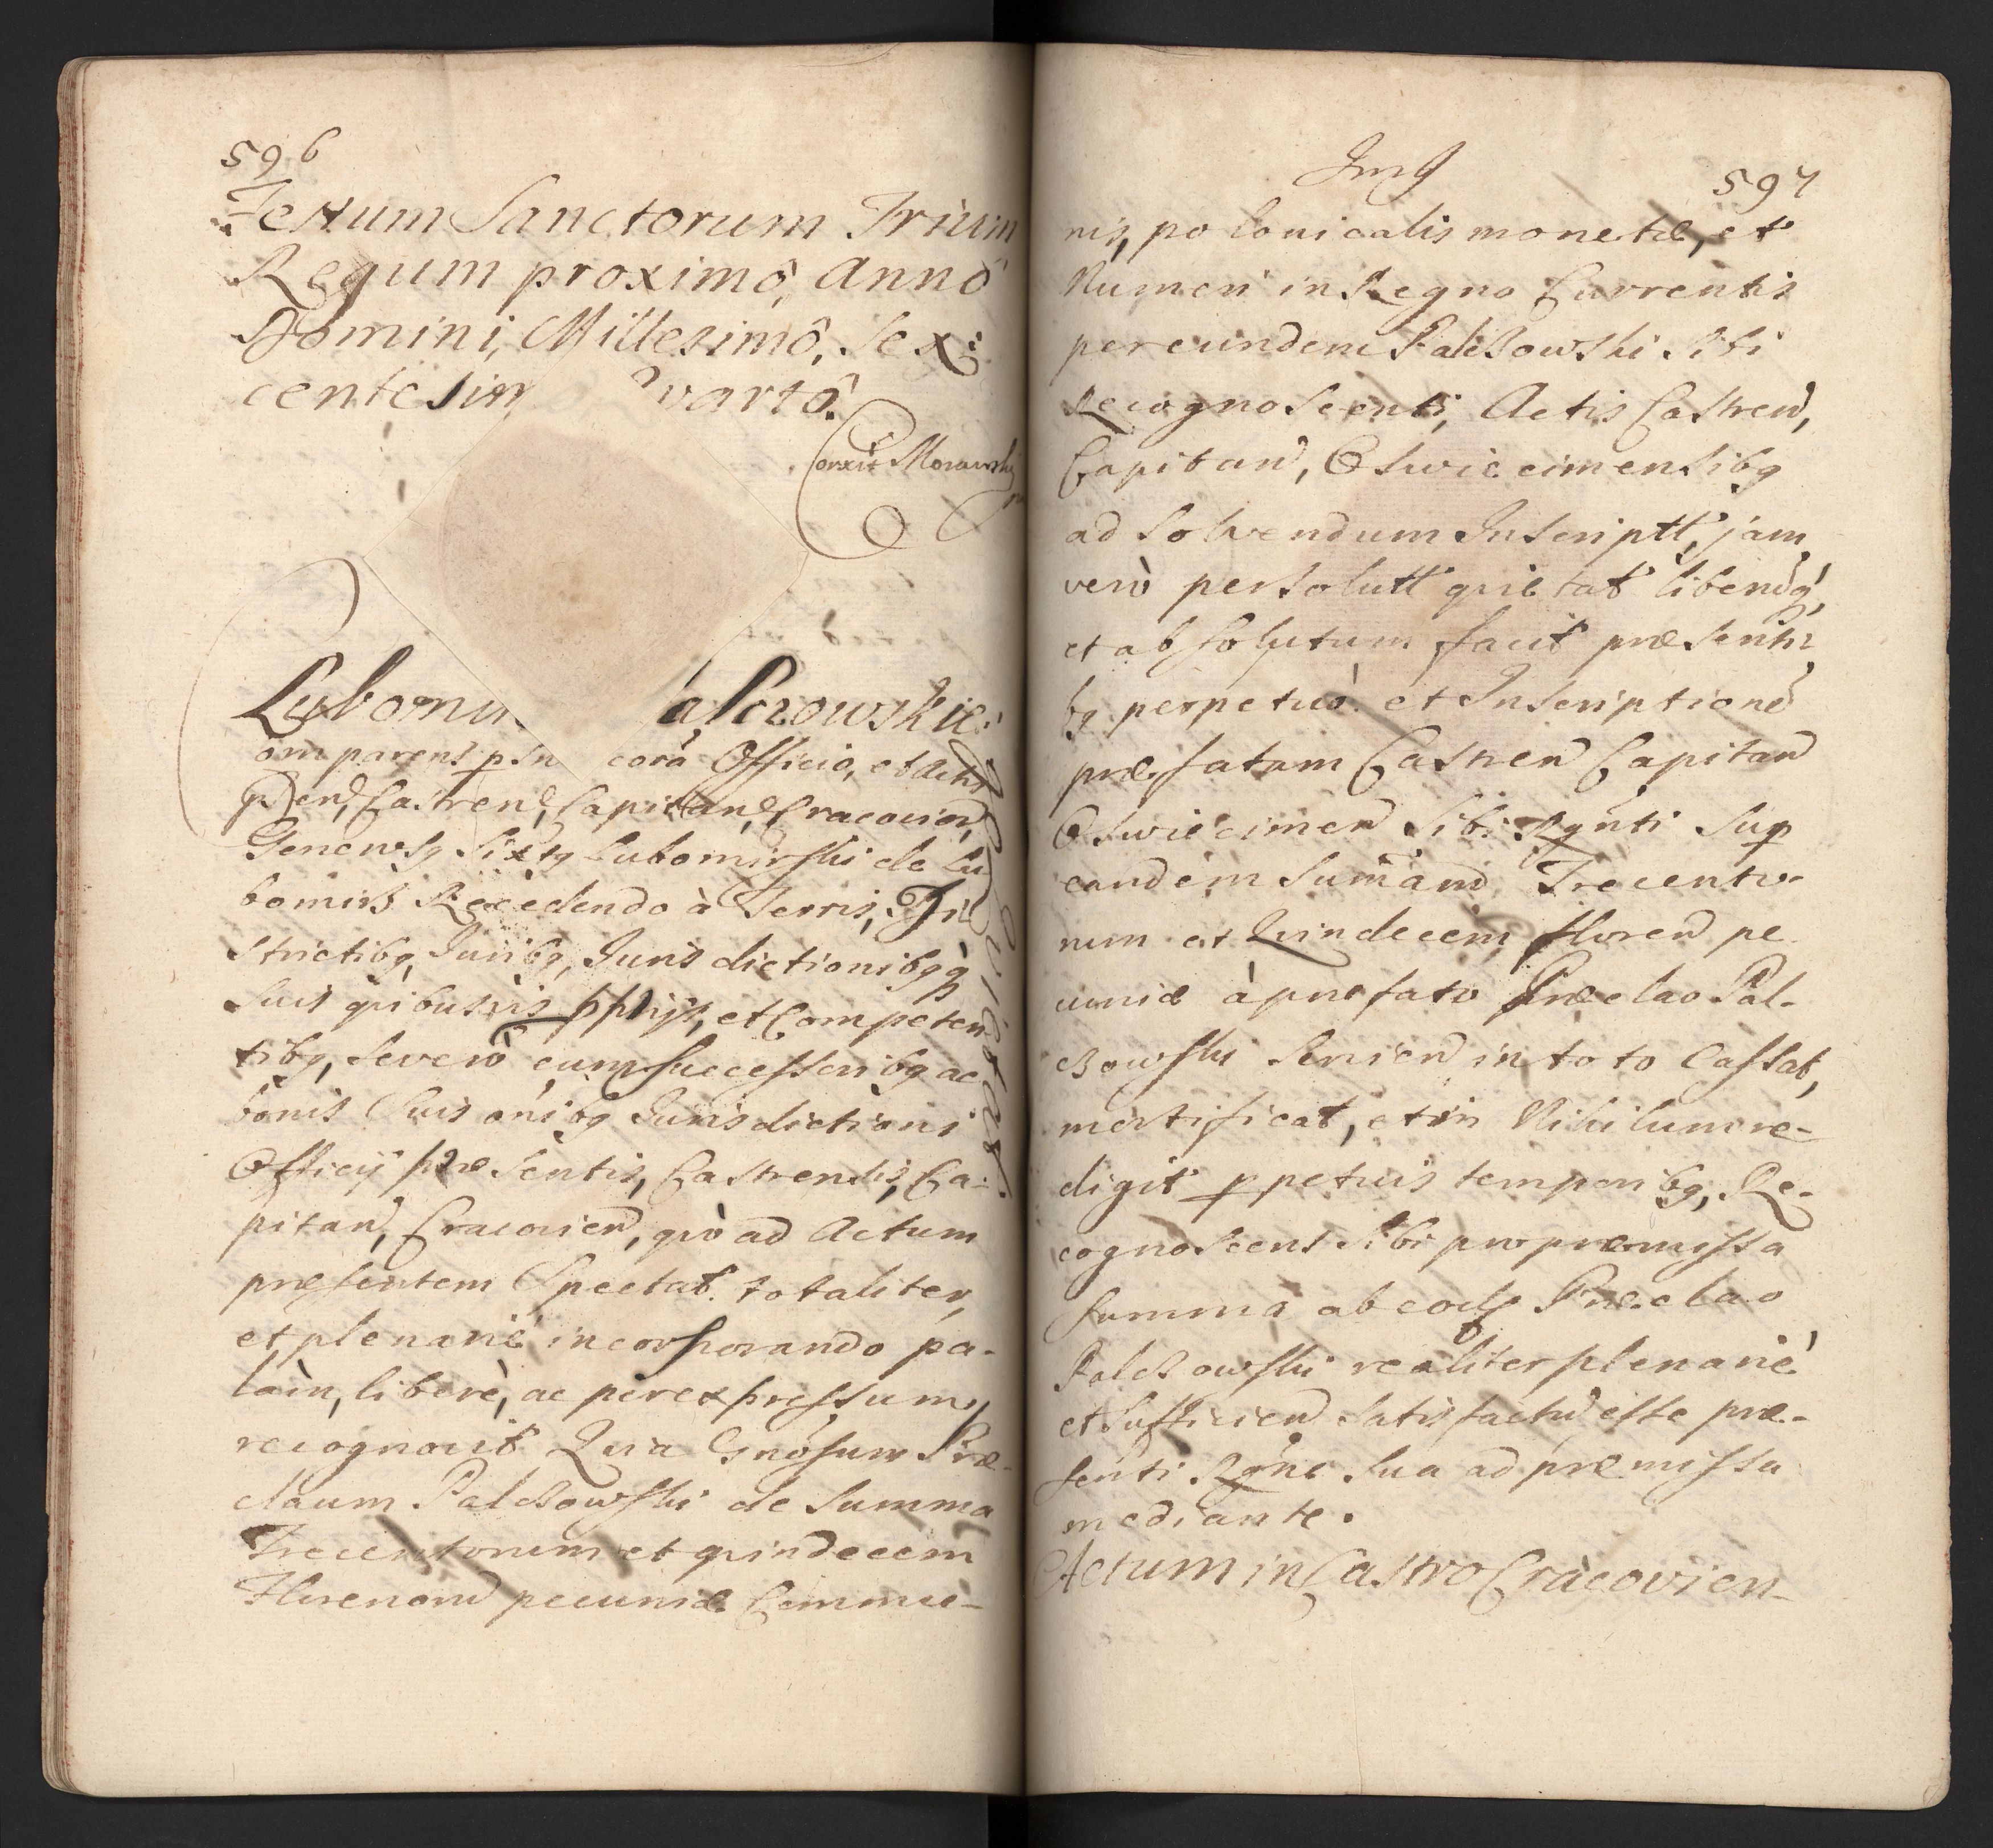 596
Festum Sanctorum Trium
Regum proximô, Annô
Domini, Millesimô, Sex:
centesim Qvartô.
Corexit Morawsky
Lubomir alczowskie:
omparens psn corã Officio, et Actis
pñtten, Castren, Capitan, Cracovien,
Generosg Sixtg Lubomirski de Lu
bomirz Recedendo à Terris, Di
strictibg, Juribg, Jurisdictionibgq
suis quibusvis pprijs, et Competen
tibg, se verò cum successoribg ac
bonis Suis oñibg Jurisdictioni
Officij præsentis, Castrensis, Ca-
pitan, Cracovien, qvò ad Actum
præsentem Spectat. totaliter,
et plenariè incorporando pa-
làm, liberè, ac per expressum,
recognovit Quia Gnõsum Præ-
claum Palczowski de Summa
Trecentorum et qvindecem
Florenorum pecuniæ Commu-
Quietat
597
nis, polonicalis monetæ, et
Numeri in Regno Currentis
per eundem Palczowski Sibi
Recognoscenti, Actis Castren,
Capitan, Oswiecimensibg
ad Solvendum Inscriptt, jam
verò persolutt qvietat liberũq,
et absolutum facit præsenti
bg perpetuò. et Inscriptionẽ
præfatam Castren Capitan
Oswiecimen Sibi Rgnti Sup
eandem Summam Trecento-
rum et Qvindecem floren pe
cuniæ à præfato Præclao Pal-
czowski Servien in toto Cassat,
mortificat, et in Nihilum re-
digit ppetuis temporibg, Re-
cognoscens Sibi pro præmissa
summa ab eodẽ Præclao
Palczowski realiter plenariè
et sufficien satisfactũ esse præ-
senti Rgñe Sua ad præmissa
mediante.
Actum in Castro Cracovien-